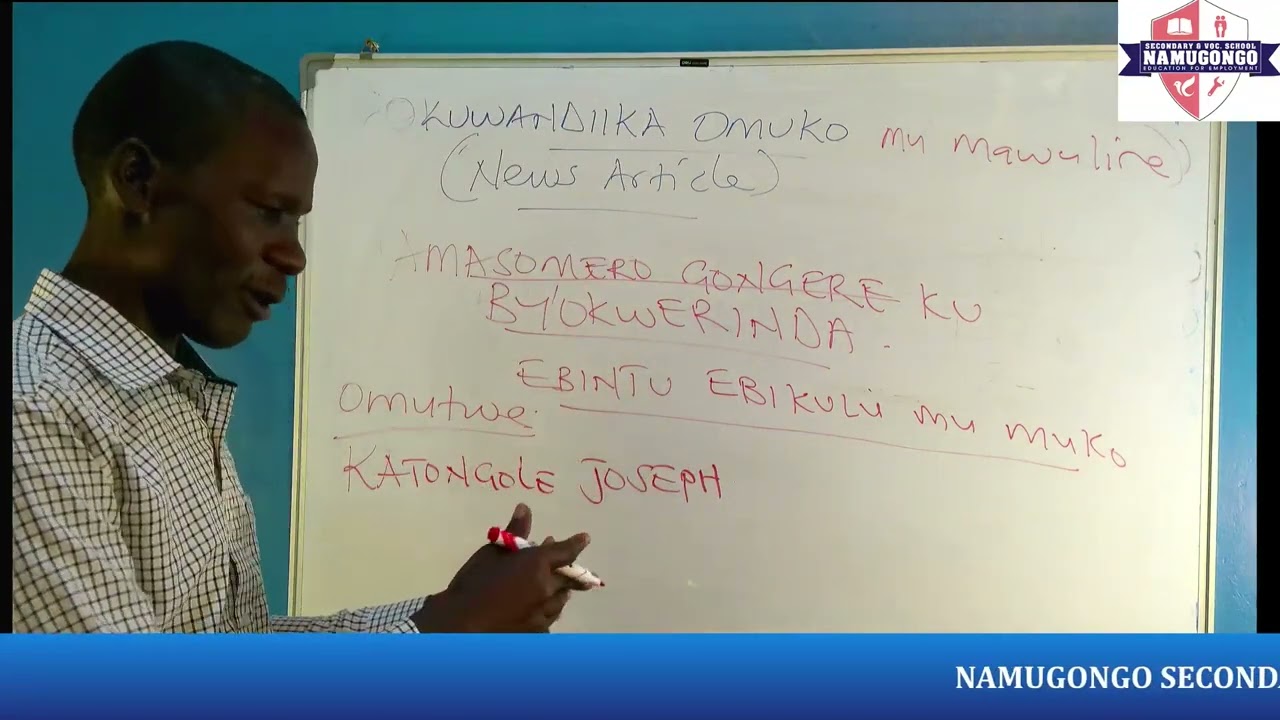 SECONDARY & VOC. SCHOOL
NAMUGONGO
EDUCATION FOR EMPLOYMENT
OKUWANDIIKA OMUKO mu mawulire)
(News Article)
AMASOMERO GONGERE KU
BYOKWERINDA.
EBINTU EBIKULU mu muko
Omutwe.
KATONGOLE JOSEPH
NAMUGONGO SECOND